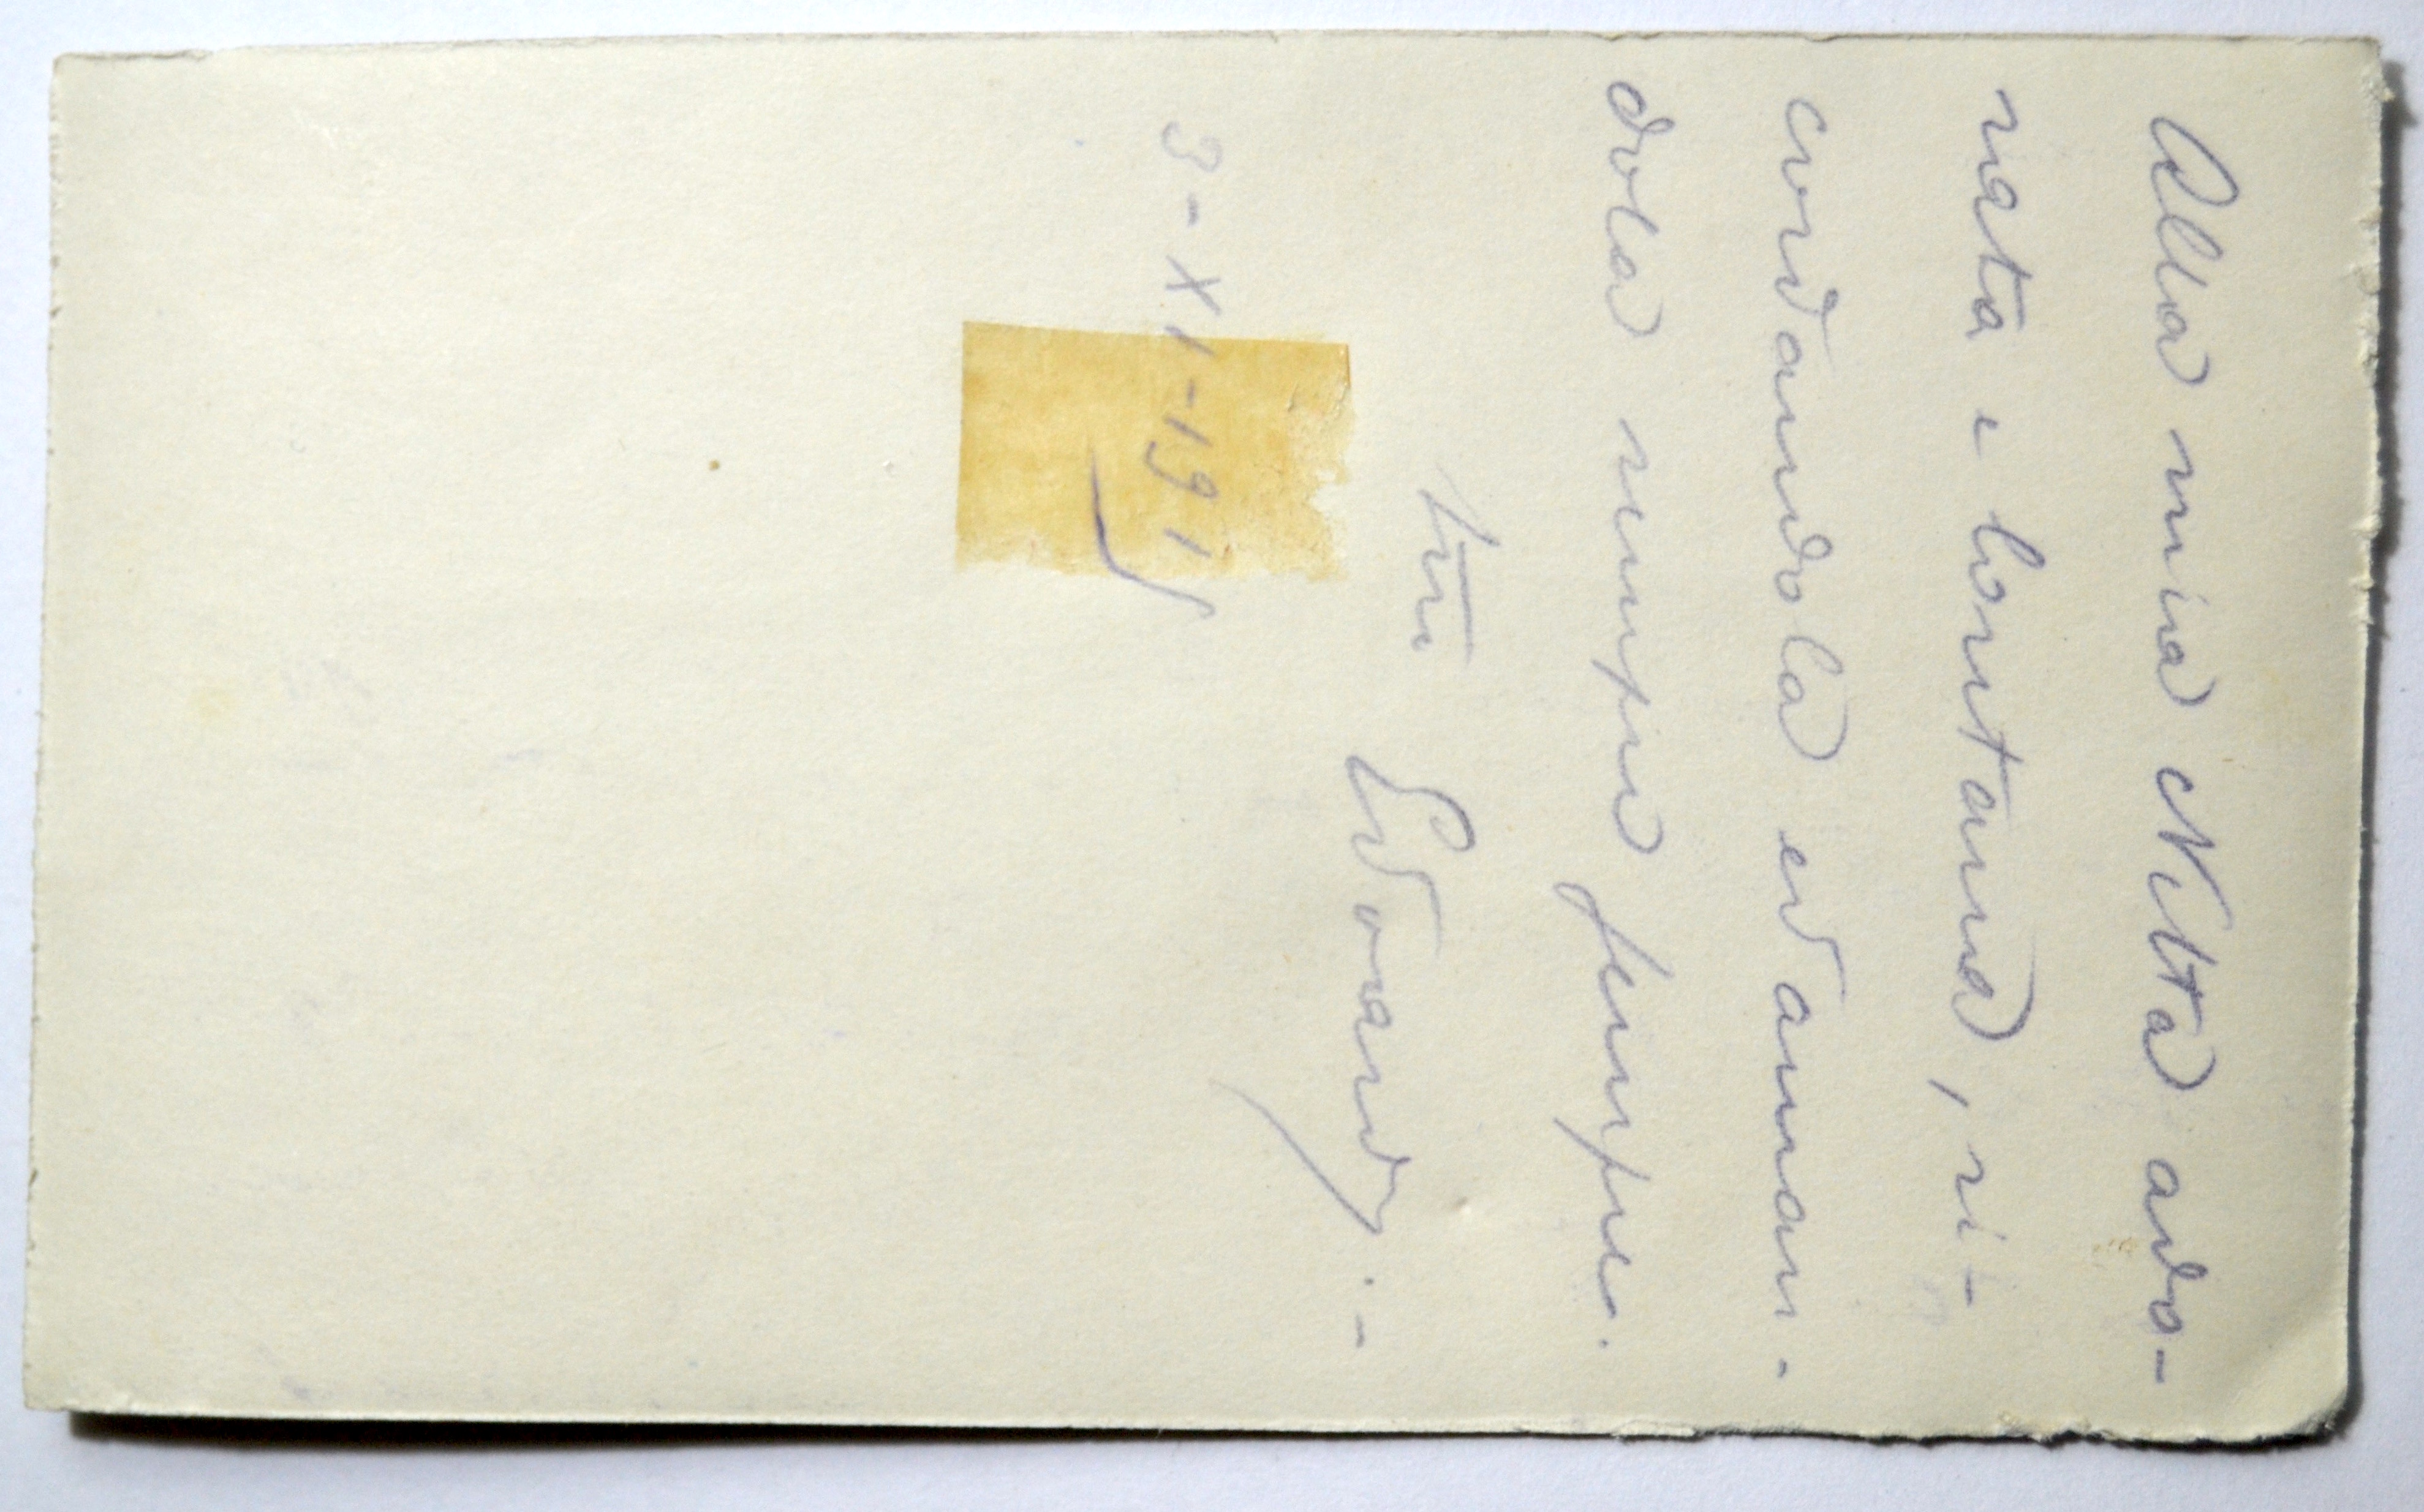 Alla mia Netta ado-
rata e lontana, ri-
cordandola ed aman-
dola sempre sempre.
tuo Edoardo.-
3-XI-1915